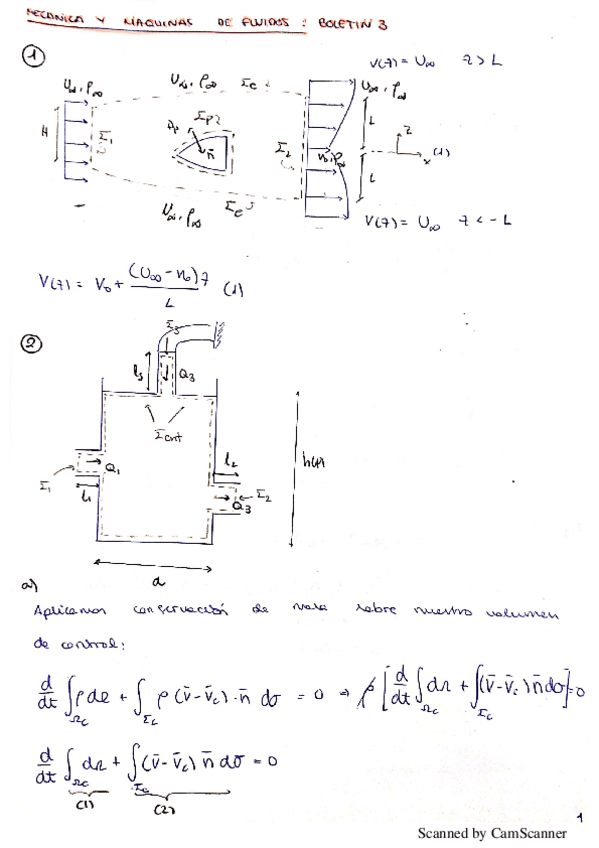 MECANICA Y MAQUINAS DE FLUIDOS : BOLETIN 3
① V(z) = U∞ z > L
U∞, ρ∞ U∞, ρ∞ Σe U∞, ρ∞
H Σ1 Σp2 Ap n̄ Σ2 ρ∞ L z x (1)
L
U∞, ρ∞ Σe V(z) = U∞ z < -L
V(z) = V0 + (U∞ - v0) z / L (1)
② Σ3
l3 Q3
Σent
l2 h(t)
Σ1 Q1 l1 Q3 Σ2
d
a)
Aplicamos conservación de masa sobre nuestro volumen
de control:
d/dt ∫Ωc ρ dΩ + ∫Σc ρ (v̄ - v̄c) · n̄ dσ = 0 ⇒ ρ [ d/dt ∫Ωc dΩ + ∫Σc (v̄ - v̄c) n̄ dσ ] = 0
d/dt ∫Ωc dΩ + ∫Σc (v̄ - v̄c) n̄ dσ = 0
(1) (2)
1
Scanned by CamScanner